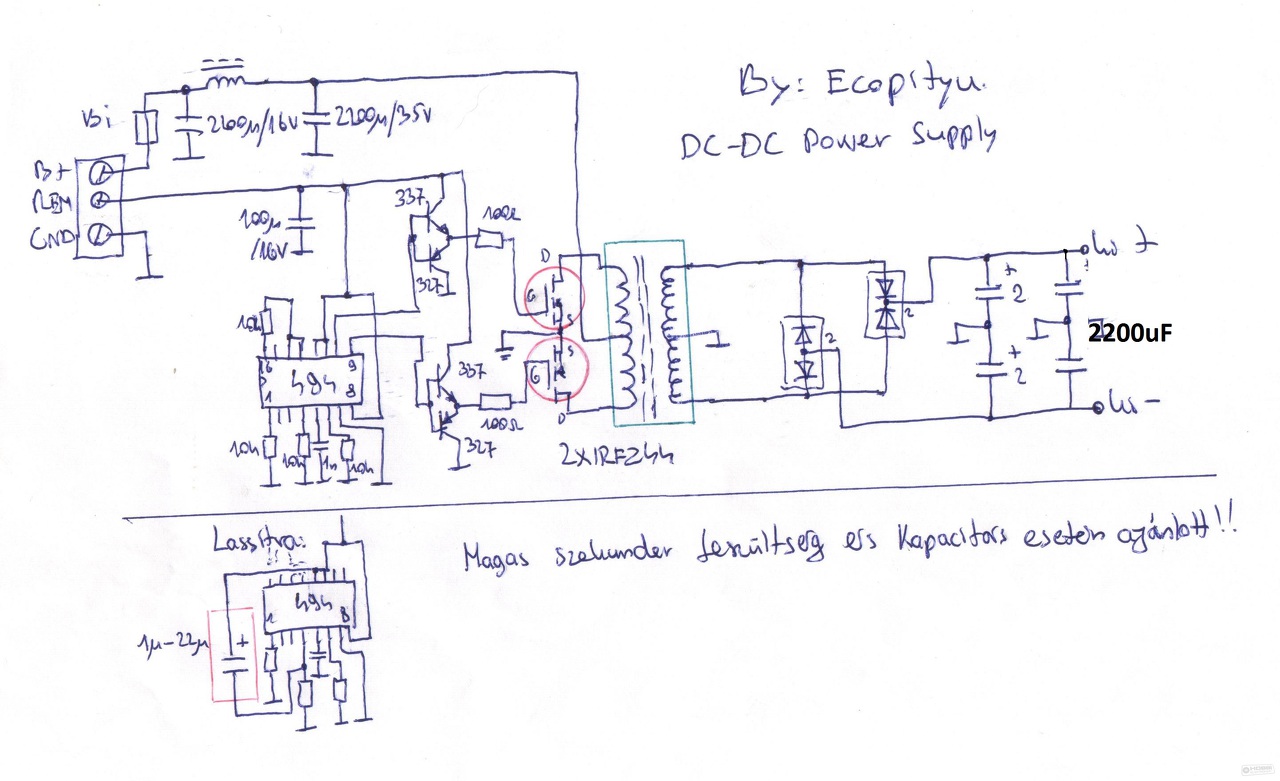 By: Ecopityu.
DC-DC Power Supply
Bi
2200µ/16V
2200µ/35V
B+
REM
GND
100µ
/16V
337
100Ω
327
D
G
S
S
G
D
10k
16
9
494
1
8
337
100Ω
327
10k
10k
1n
10k
2XIRFZ44
2
2
+
2
+
2
+
2200uF
Us +
Us -
Lassítva:
494
1
8
1µ-22µ
+
Magas szekunder feszültség és Kapacitás esetén ajánlott!!